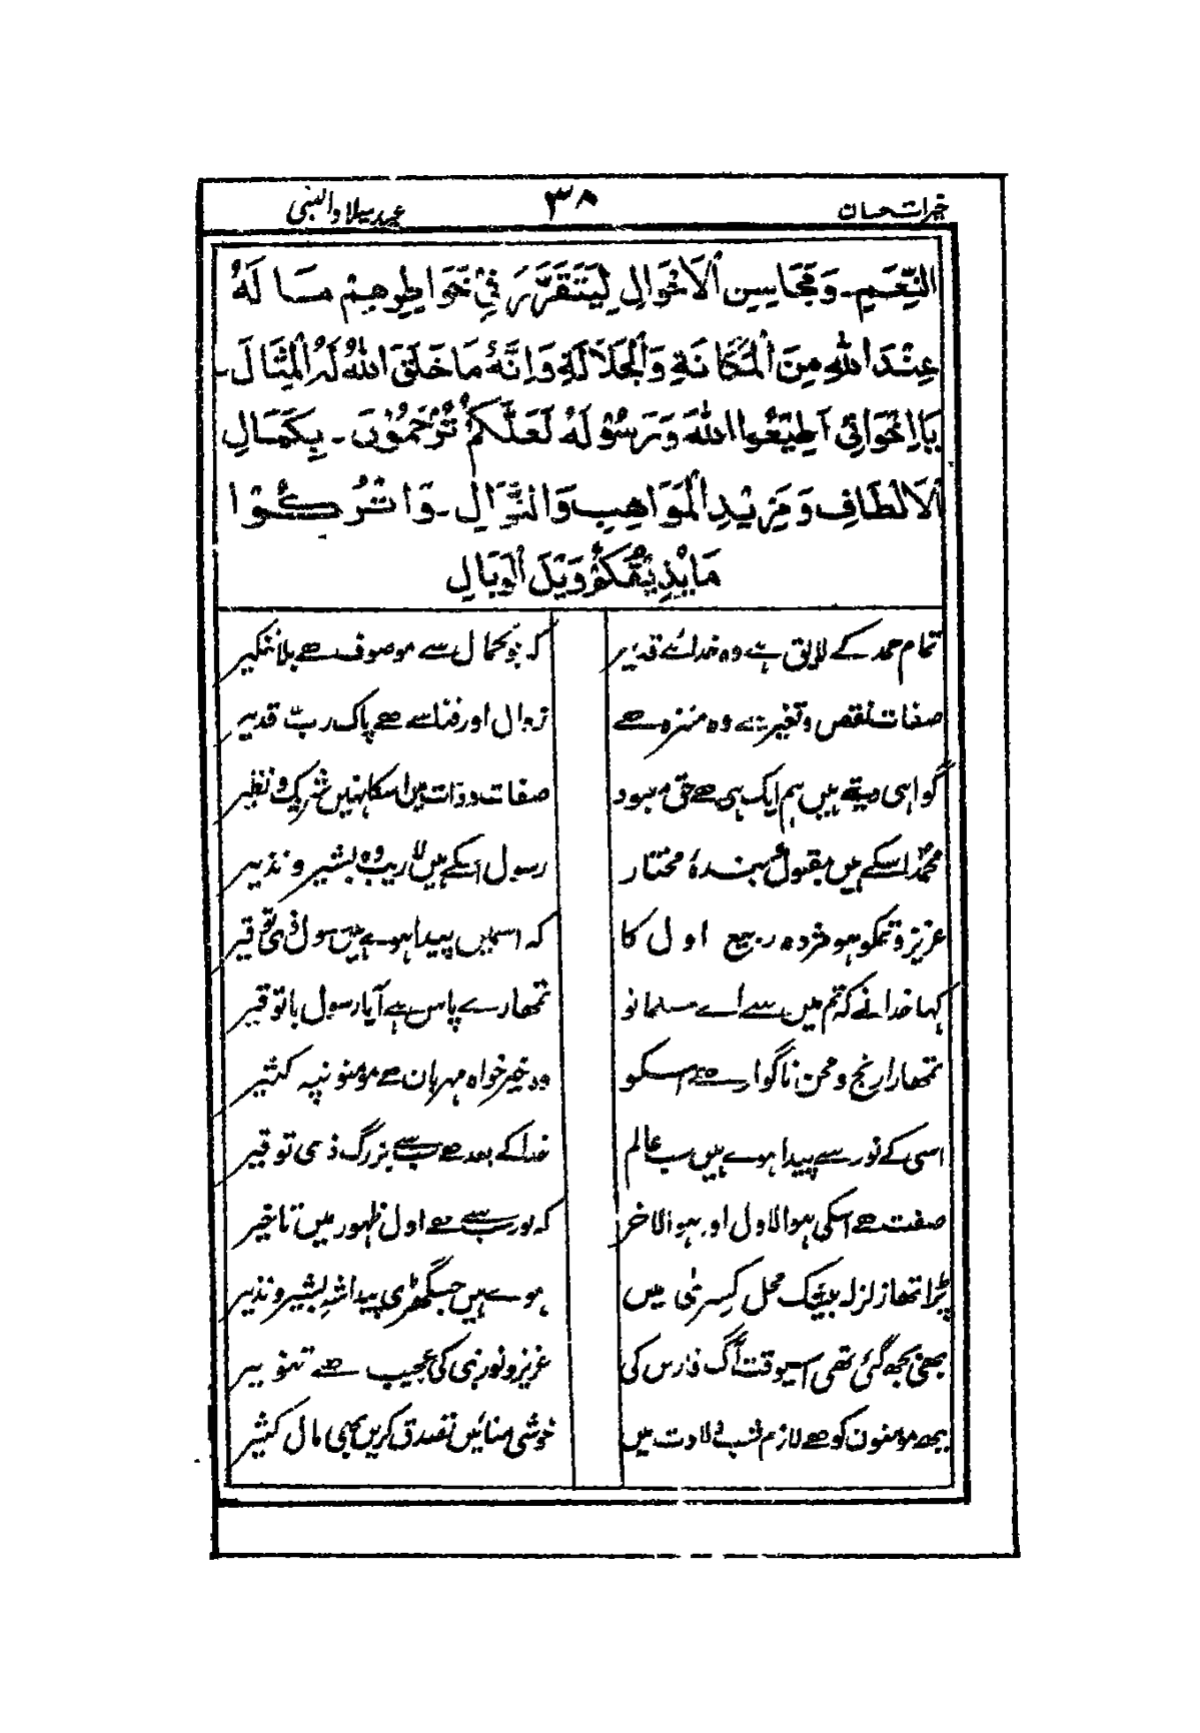 خیرات حسان ۳۸ عید میلاد النبی
النِّعَمِ۔ وَمَحَاسِنِ الْاَحْوَالِ لِيَتَقَرَّرَ فِيْ خَوَاطِرِهِمْ مَا لَهُ
عِنْدَ اللهِ مِنَ الْمَكَانَةِ وَالْجَلَالَةِ وَاِنَّهُ مَا خَلَقَ اللهُ لَهُ الْمِثَالَ۔
يَا اِخْوَانِيْ اَطِيْعُوا اللهَ وَرَسُوْلَهُ لَعَلَّكُمْ تُرْحَمُوْنَ۔ بِكَمَالِ
الْاَلْطَافِ وَمَزِيْدِ الْمَوَاهِبِ وَالنَّوَالِ۔ وَاتْرُكُوْا
مَا يُذِيْقُكُمْ وَيْلَ الْوَبَالِ
تمام حمد کے لایق ہے وہ خدائے قدیر کہ جو کمال سے موصوف ہے بلا نکیر
صفات نقص و تغیر سے وہ منزہ ہے زوال اور فنا سے ہے پاک رب قدیر
گواہی دیتے ہیں ہم ایک ہی ہے حق معبود صفات و ذات میں اسکا نہیں شریک و نظیر
محمد اسکے ہیں مقبول بندۂ مختار رسول اسکے ہیں لاریب وہ بشیر و نذیر
عزیزو تمکو ہو مژدہ ربیع اول کا کہ اسمیں پیدا ہوے ہیں رسول ذی توقیر
کہا خدا نے کہ تم میں سے اے مسلمانو تمھارے پاس ہے آیا رسول باتوقیر
تمھارا رنج و محن ناگوار ہے اسکو وہ خیر خواہ مہربان ہے مومنونپہ کثیر
اسی کے نور سے پیدا ہوے ہیں سب عالم خدا کے بعد ہے سب سے بزرگ ذی توقیر
صفت ہے اسکی ہوالاول اور ہوالاخر کہ نور سب سے ہے اول ظہور میں تاخیر
پڑا تھا زلزلہ بیشک محل کسریٰ میں ہوے ہیں جسگھڑی پیدا شہ بشیر و نذیر
بھی بجھ گئی تھی اسیوقت آگ فارس کی عزیزو نور نبی کی عجیب ہے تنویر
یہہ مومنون کو ہے لازم شب ولادت میں خوشی منائیں تصدق کریں بھی مال کثیر